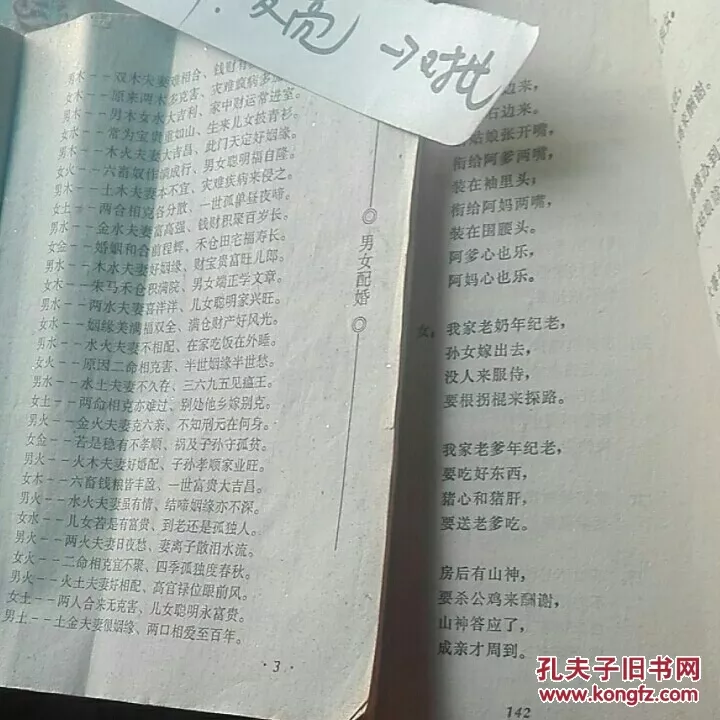 →对批
男木——双木夫妻难相合、钱财有
女木——原来两木多克害、灾难疾病多
男木——男木女水大吉利、家中财运常进室。
女水——常为宝贵重如山、生来儿女披青衫。
男木——木火夫妻大吉昌、此门天定好姻缘。
女火——六畜奴作满成行、男女聪明福自隆。
男木——土木夫妻本不宜、灾难疾病来侵之。
女土——两合相克各分散、一世孤单昼夜啼。
男水——金水夫妻富高强、钱财积聚百岁长。
女金——婚姻和合前程辉、禾仓田宅福寿长。
男水——木水夫妻好姻缘、财宝贵富旺儿郎。
女木——朱马禾仓积满院、男女端正学文章。
男水——两水夫妻喜洋洋、儿女聪明家兴旺。
女水——姻缘美满福双全、满仓财产好风光。
男水——水火夫妻不相配、在家吃饭在外睡。
女火——原因二命相克害、半世姻缘半世愁。
男水——水土夫妻不久存、三六九五见瘟王。
女土——两命相克亦难过、别处他乡嫁别克。
男火——金火夫妻克六亲、不知刑元在何身。
女金——若是稳有不孝顺、祸及子孙守孤贫。
男火——火木夫妻好婚配、子孙孝顺家业旺。
女木——六畜钱粮皆丰盈、一世富贵大吉昌。
男火——水火夫妻虽有情、结啼姻缘亦不深。
女水——儿女若是有富贵、到老还是孤独人。
男火——两火夫妻日夜愁、妻离子散泪水流。
女火——二命相克宜不聚、四季孤独度春秋。
男火——火土夫妻好相配、高官禄位眼前风。
女土——两人合来无克害、儿女聪明永富贵。
男土——土金夫妻很姻缘、两口相爱至百年。
◎男女配婚◎
·3·
边来，
右边来。
姑娘张开嘴，
衔给阿爹两嘴，
装在袖里头；
衔给阿妈两嘴，
装在围腰头。
阿爹心也乐，
阿妈心也乐。
女：我家老奶年纪老，
孙女嫁出去，
没人来服侍，
要根拐棍来探路。
我家老爹年纪老，
要吃好东西，
猪心和猪肝，
要送老爹吃。
房后有山神，
要杀公鸡来酬谢，
山神答应了，
成亲才周到。
142
孔夫子旧书网
www.kongfz.com